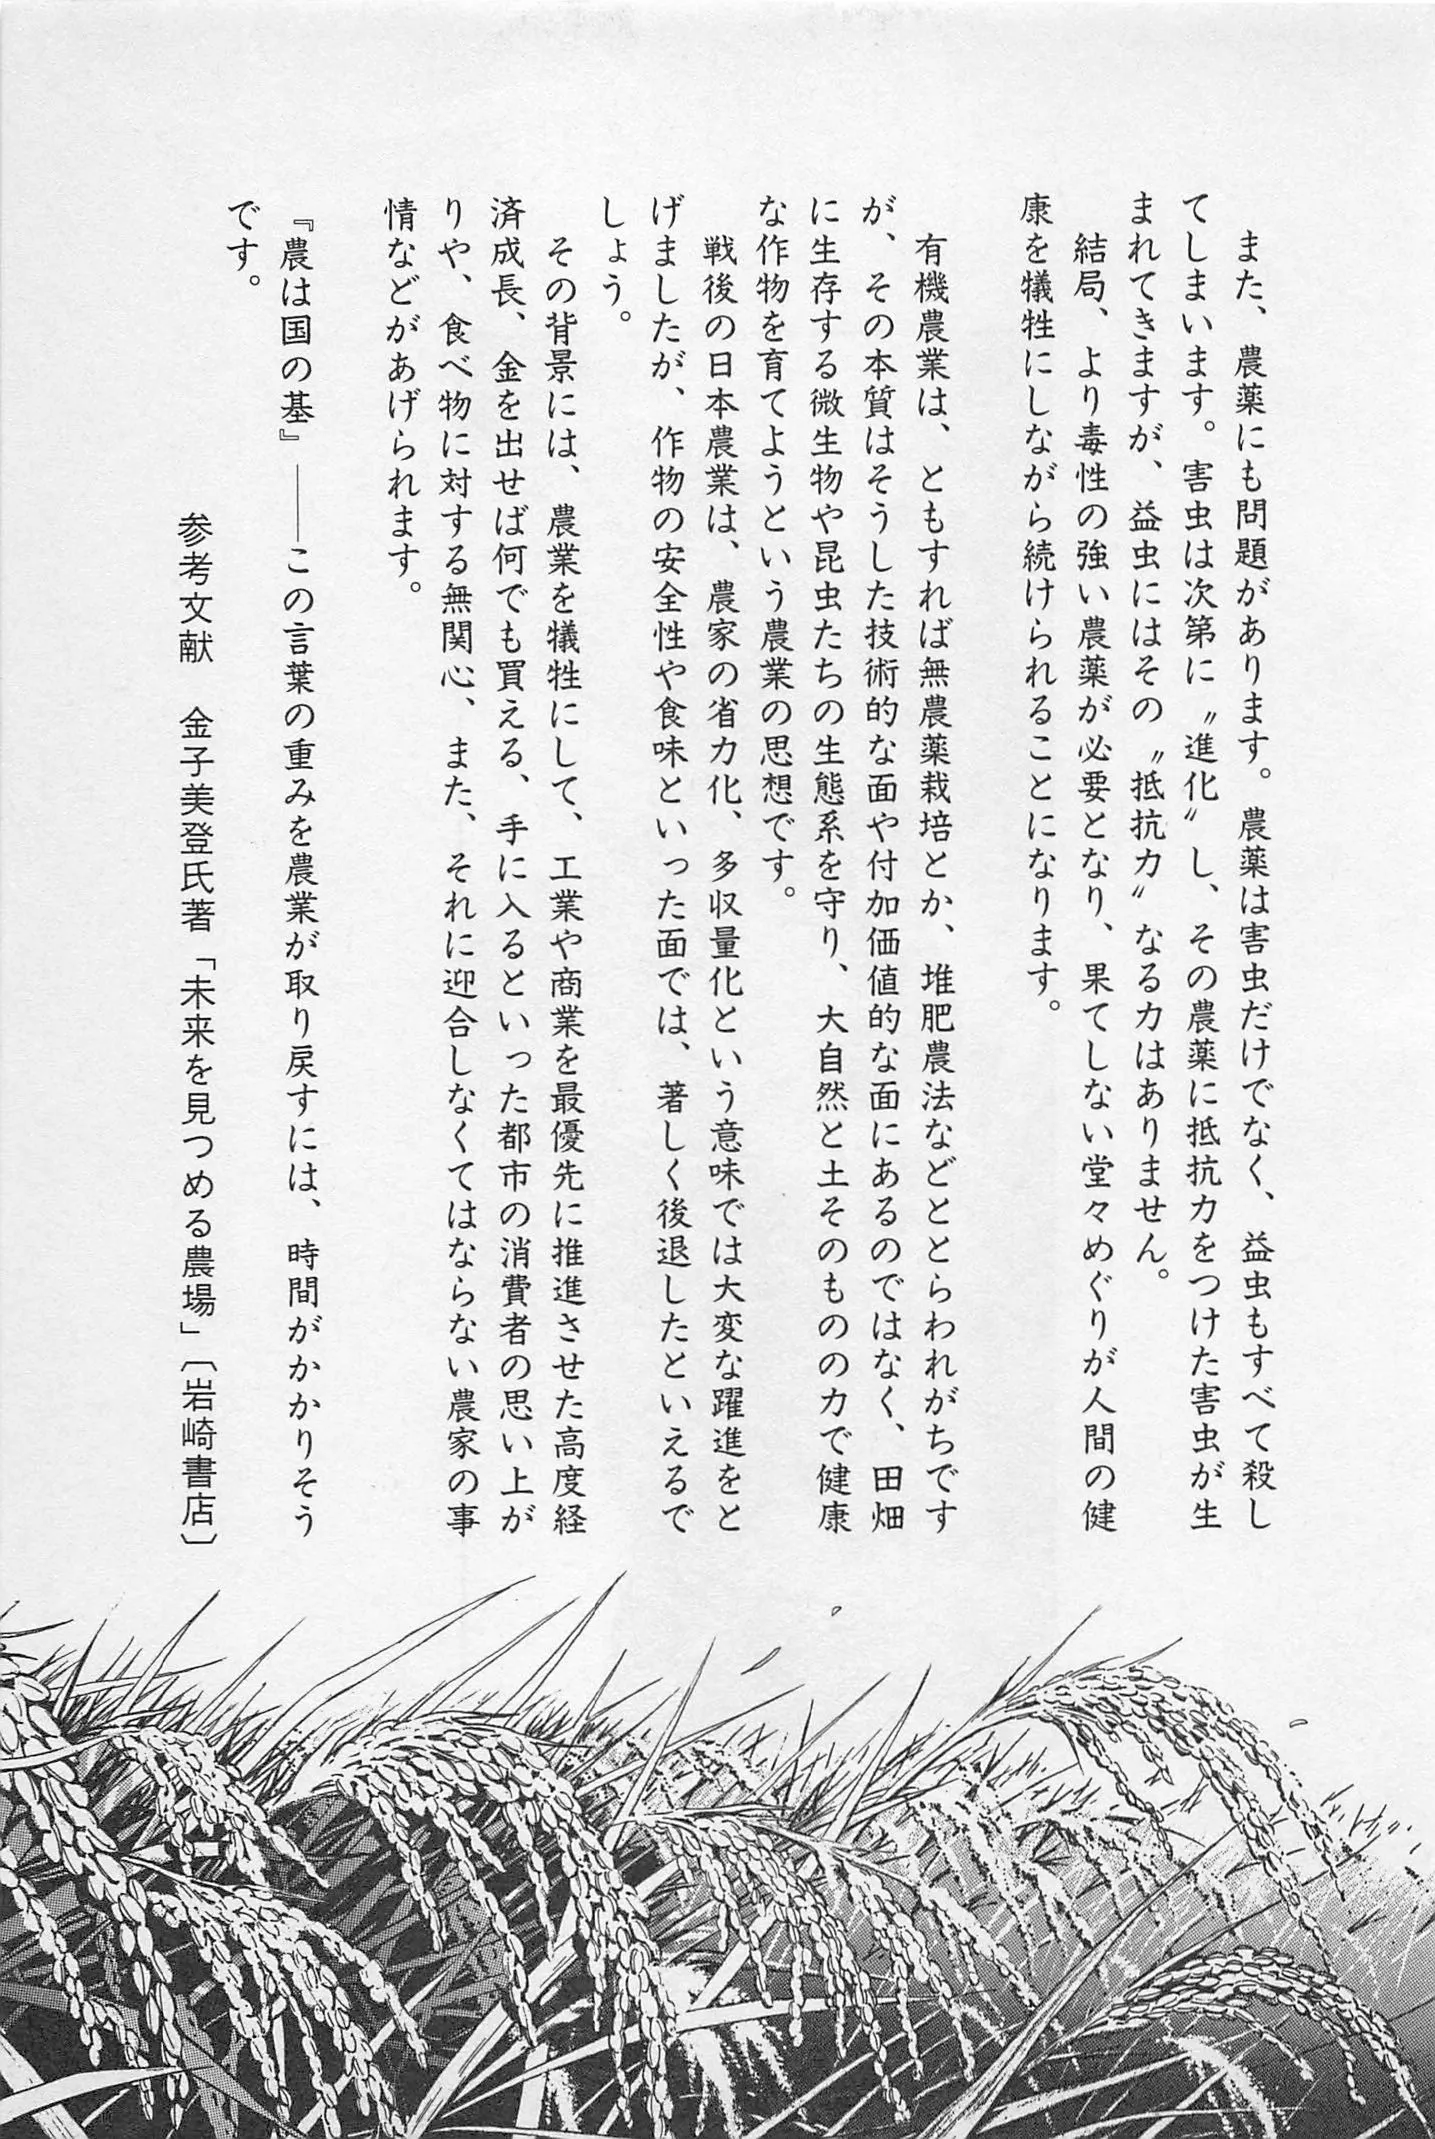 また、農薬にも問題があります。農薬は害虫だけでなく、益虫もすべて殺し
てしまいます。害虫は次第に〝進化〟し、その農薬に抵抗力をつけた害虫が生
まれてきますが、益虫にはその〝抵抗力〟なる力はありません。
　結局、より毒性の強い農薬が必要となり、果てしない堂々めぐりが人間の健
康を犠牲にしながら続けられることになります。
　有機農業は、ともすれば無農薬栽培とか、堆肥農法などととらわれがちです
が、その本質はそうした技術的な面や付加価値的な面にあるのではなく、田畑
に生存する微生物や昆虫たちの生態系を守り、大自然と土そのものの力で健康
な作物を育てようという農業の思想です。
　戦後の日本農業は、農家の省力化、多収量化という意味では大変な躍進をと
げましたが、作物の安全性や食味といった面では、著しく後退したといえるで
しょう。
　その背景には、農業を犠牲にして、工業や商業を最優先に推進させた高度経
済成長、金を出せば何でも買える、手に入るといった都市の消費者の思い上が
りや、食べ物に対する無関心、また、それに迎合しなくてはならない農家の事
情などがあげられます。
『農は国の基』――この言葉の重みを農業が取り戻すには、時間がかかりそう
です。
参考文献　金子美登氏著「未来を見つめる農場」〔岩崎書店〕